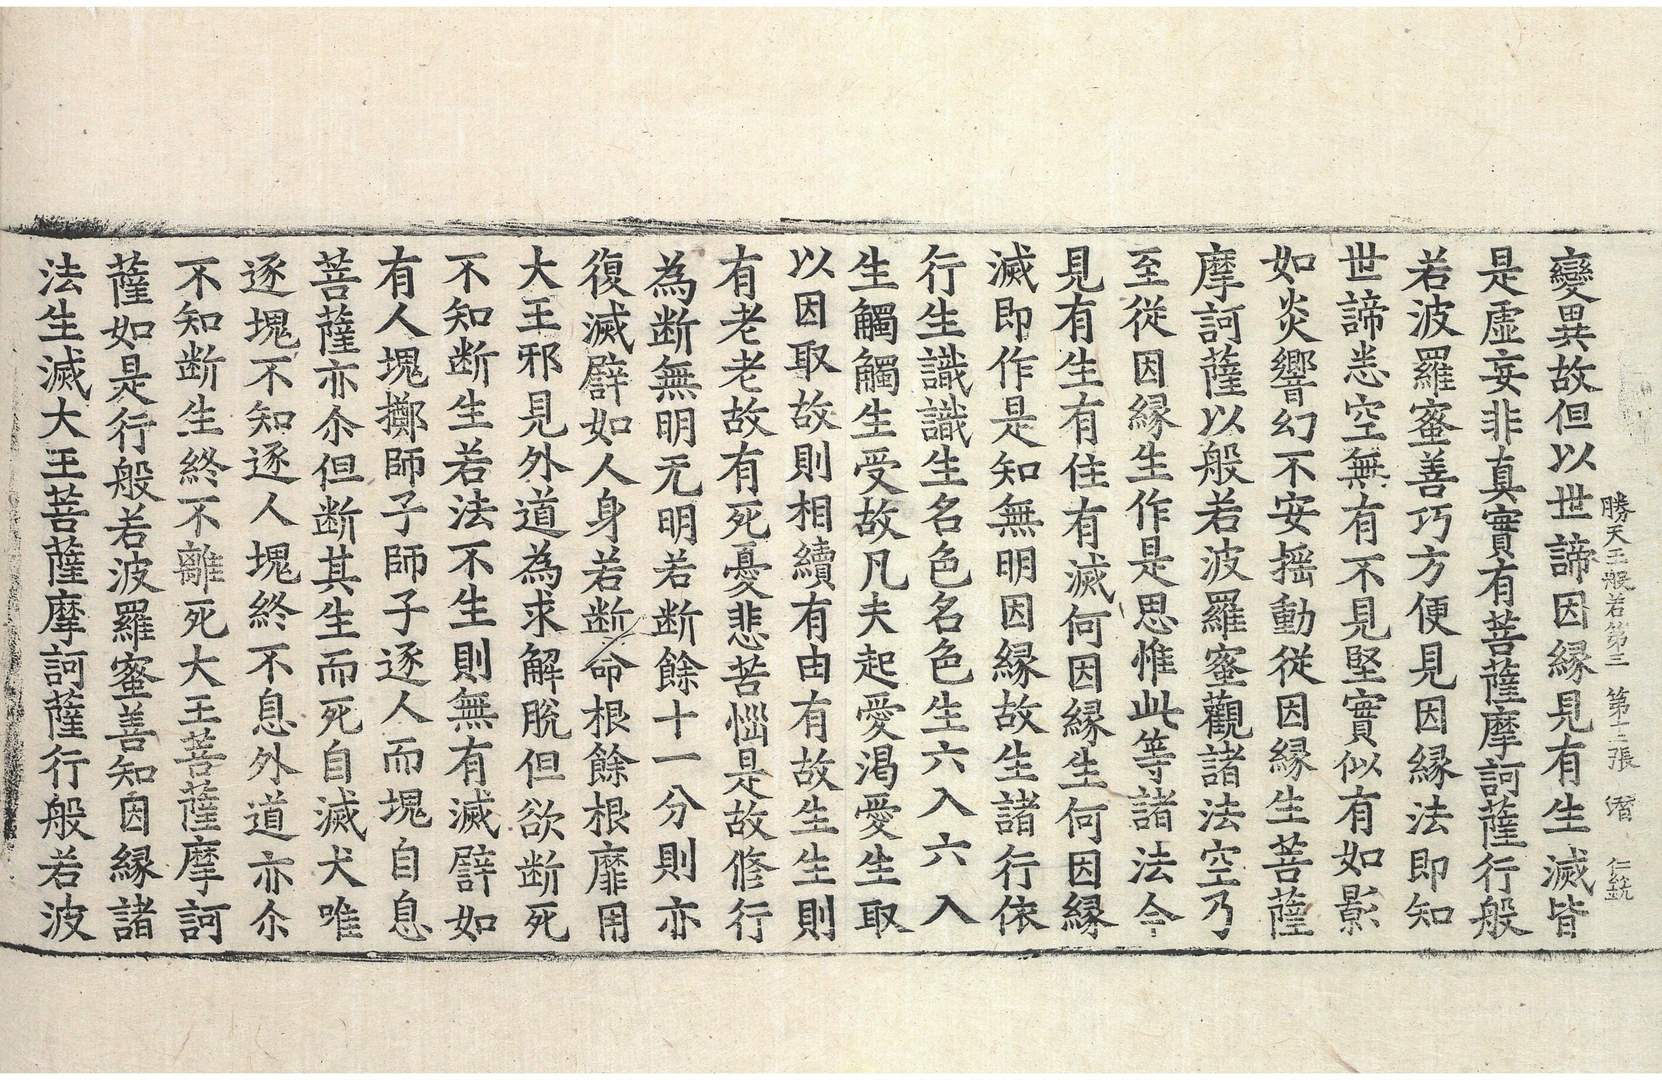 勝天王般若第三　第十二張　潛　仁銃
變異故但以世諦因縁見有生滅皆
是虛妄非真實有菩薩摩訶薩行般
若波羅蜜善巧方便見因縁法即知
世諦悉空無有不見堅實似有如影
如炎響幻不安揺動從因縁生菩薩
摩訶薩以般若波羅蜜觀諸法空乃
至從因縁生作是思惟此等諸法今
見有生有住有滅何因縁生何因縁
滅即作是知無明因縁故生諸行依
行生識識生名色名色生六入六入
生觸觸生受故凡夫起愛渴愛生取
以因取故則相續有由有故生生則
有老老故有死憂悲苦惱是故修行
為断無明无明若断餘十一分則亦
復滅譬如人身若断命根餘根靡用
大王邪見外道為求解脫但欲断死
不知断生若法不生則無有滅譬如
有人塊擲師子師子逐人而塊自息
菩薩亦尒但断其生而死自滅犬唯
逐塊不知逐人塊終不息外道亦尒
不知断生終不離死大王菩薩摩訶
薩如是行般若波羅蜜善知因縁諸
法生滅大王菩薩摩訶薩行般若波